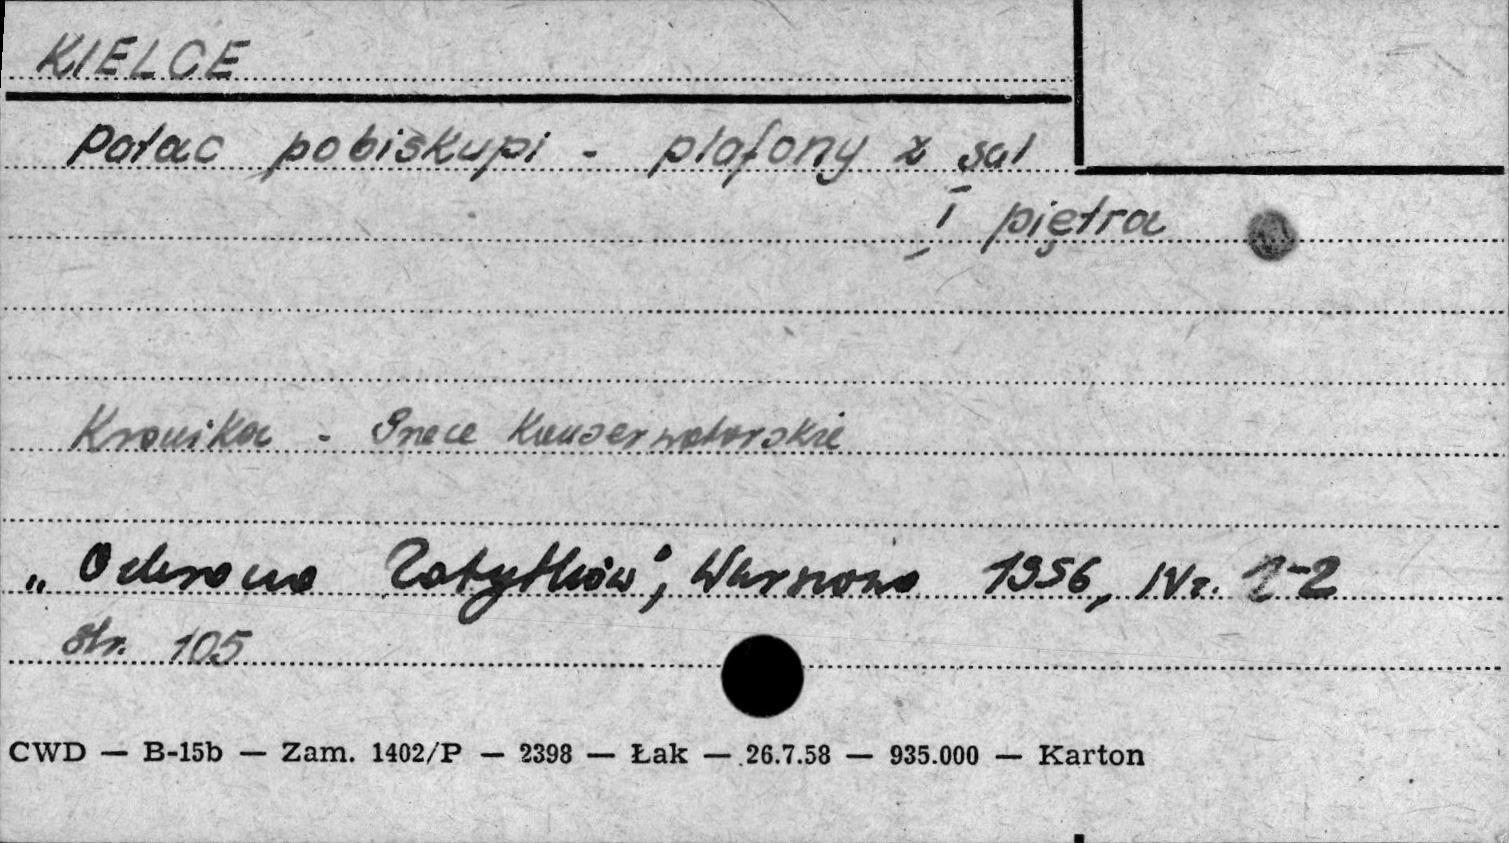 KIELCE
Pałac pobiskupi - plafony z sal
I piętra
Kronika - Prace Konserwatorskie
„Ochrona Zabytków", Warszawa 1956, Nr. 1-2
str. 105
CWD — B-15b — Zam. 1402/P — 2398 — Łak — 26.7.58 — 935.000 — Karton